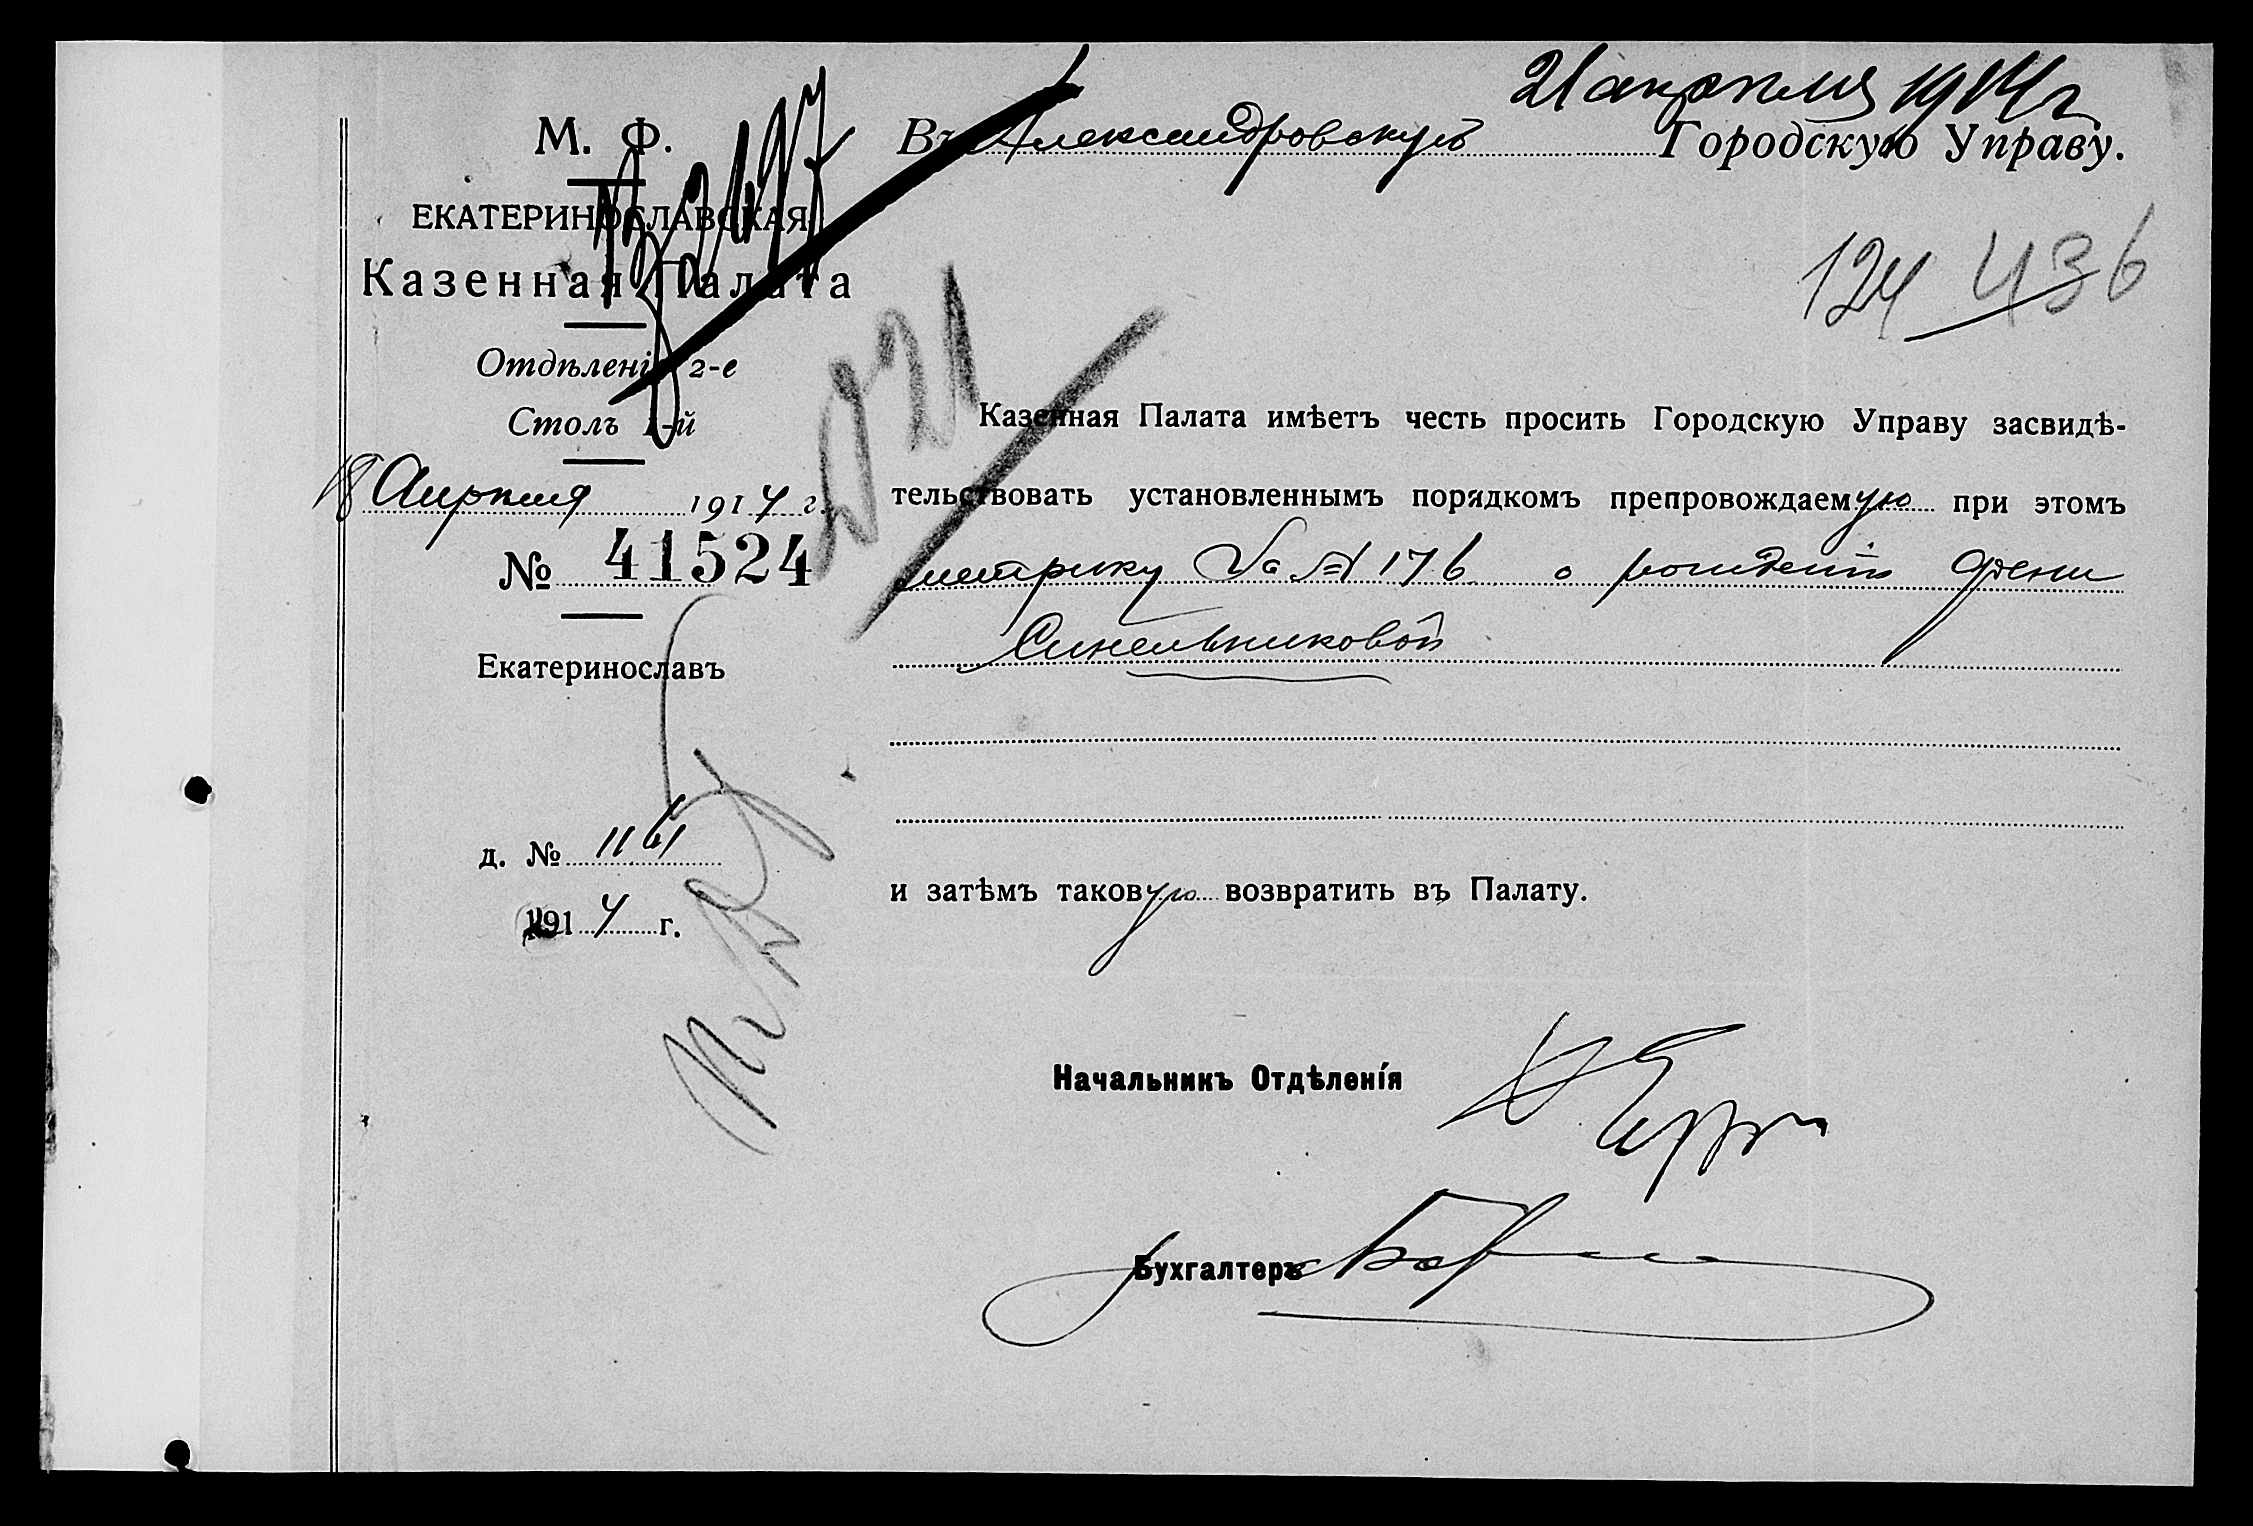 21 апрѣля 1914 г
М. Ф.
ЕКАТЕРИНОСЛАВСКАЯ
Казенная Палата
Отдѣленіе 2-е
Столъ 1-й
18 Апрѣля 1914 г.
№ 41524
Екатеринославъ
д. № 1161
1914 г.
Въ Александровскую Городскую Управу.
124 436
Казенная Палата имѣетъ честь просить Городскую Управу засвидѣ-
тельствовать установленнымъ порядкомъ препровождаемую при этомъ
метрику за № 176 о рожденіи Фени
Синельниковой
и затѣмъ таковую возвратить въ Палату.
Начальникъ Отдѣленія
Бухгалтеръ